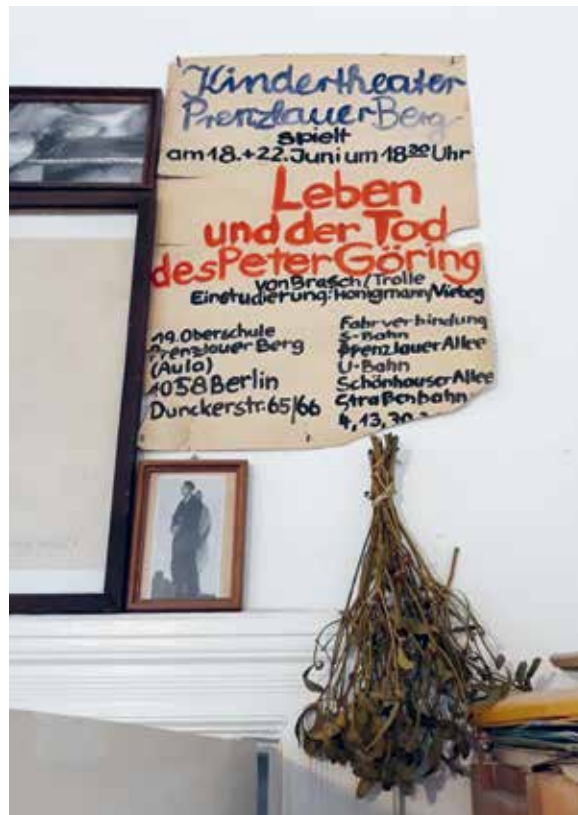 Kindertheater
Prenzlauer Berg
spielt
am 18.+22. Juni um 18³⁰ Uhr
Leben
und der Tod
des Peter Göring
von Brasch/Trolle
Einstudierung: Honigmann/Vieweg
19. Oberschule
Prenzlauer Berg
(Aula)
1058 Berlin
Dunckerstr. 65/66
Fahrverbindung
S-Bahn
Prenzlauer Allee
U-Bahn
Schönhauser Allee
Straßenbahn
4, 13, 70